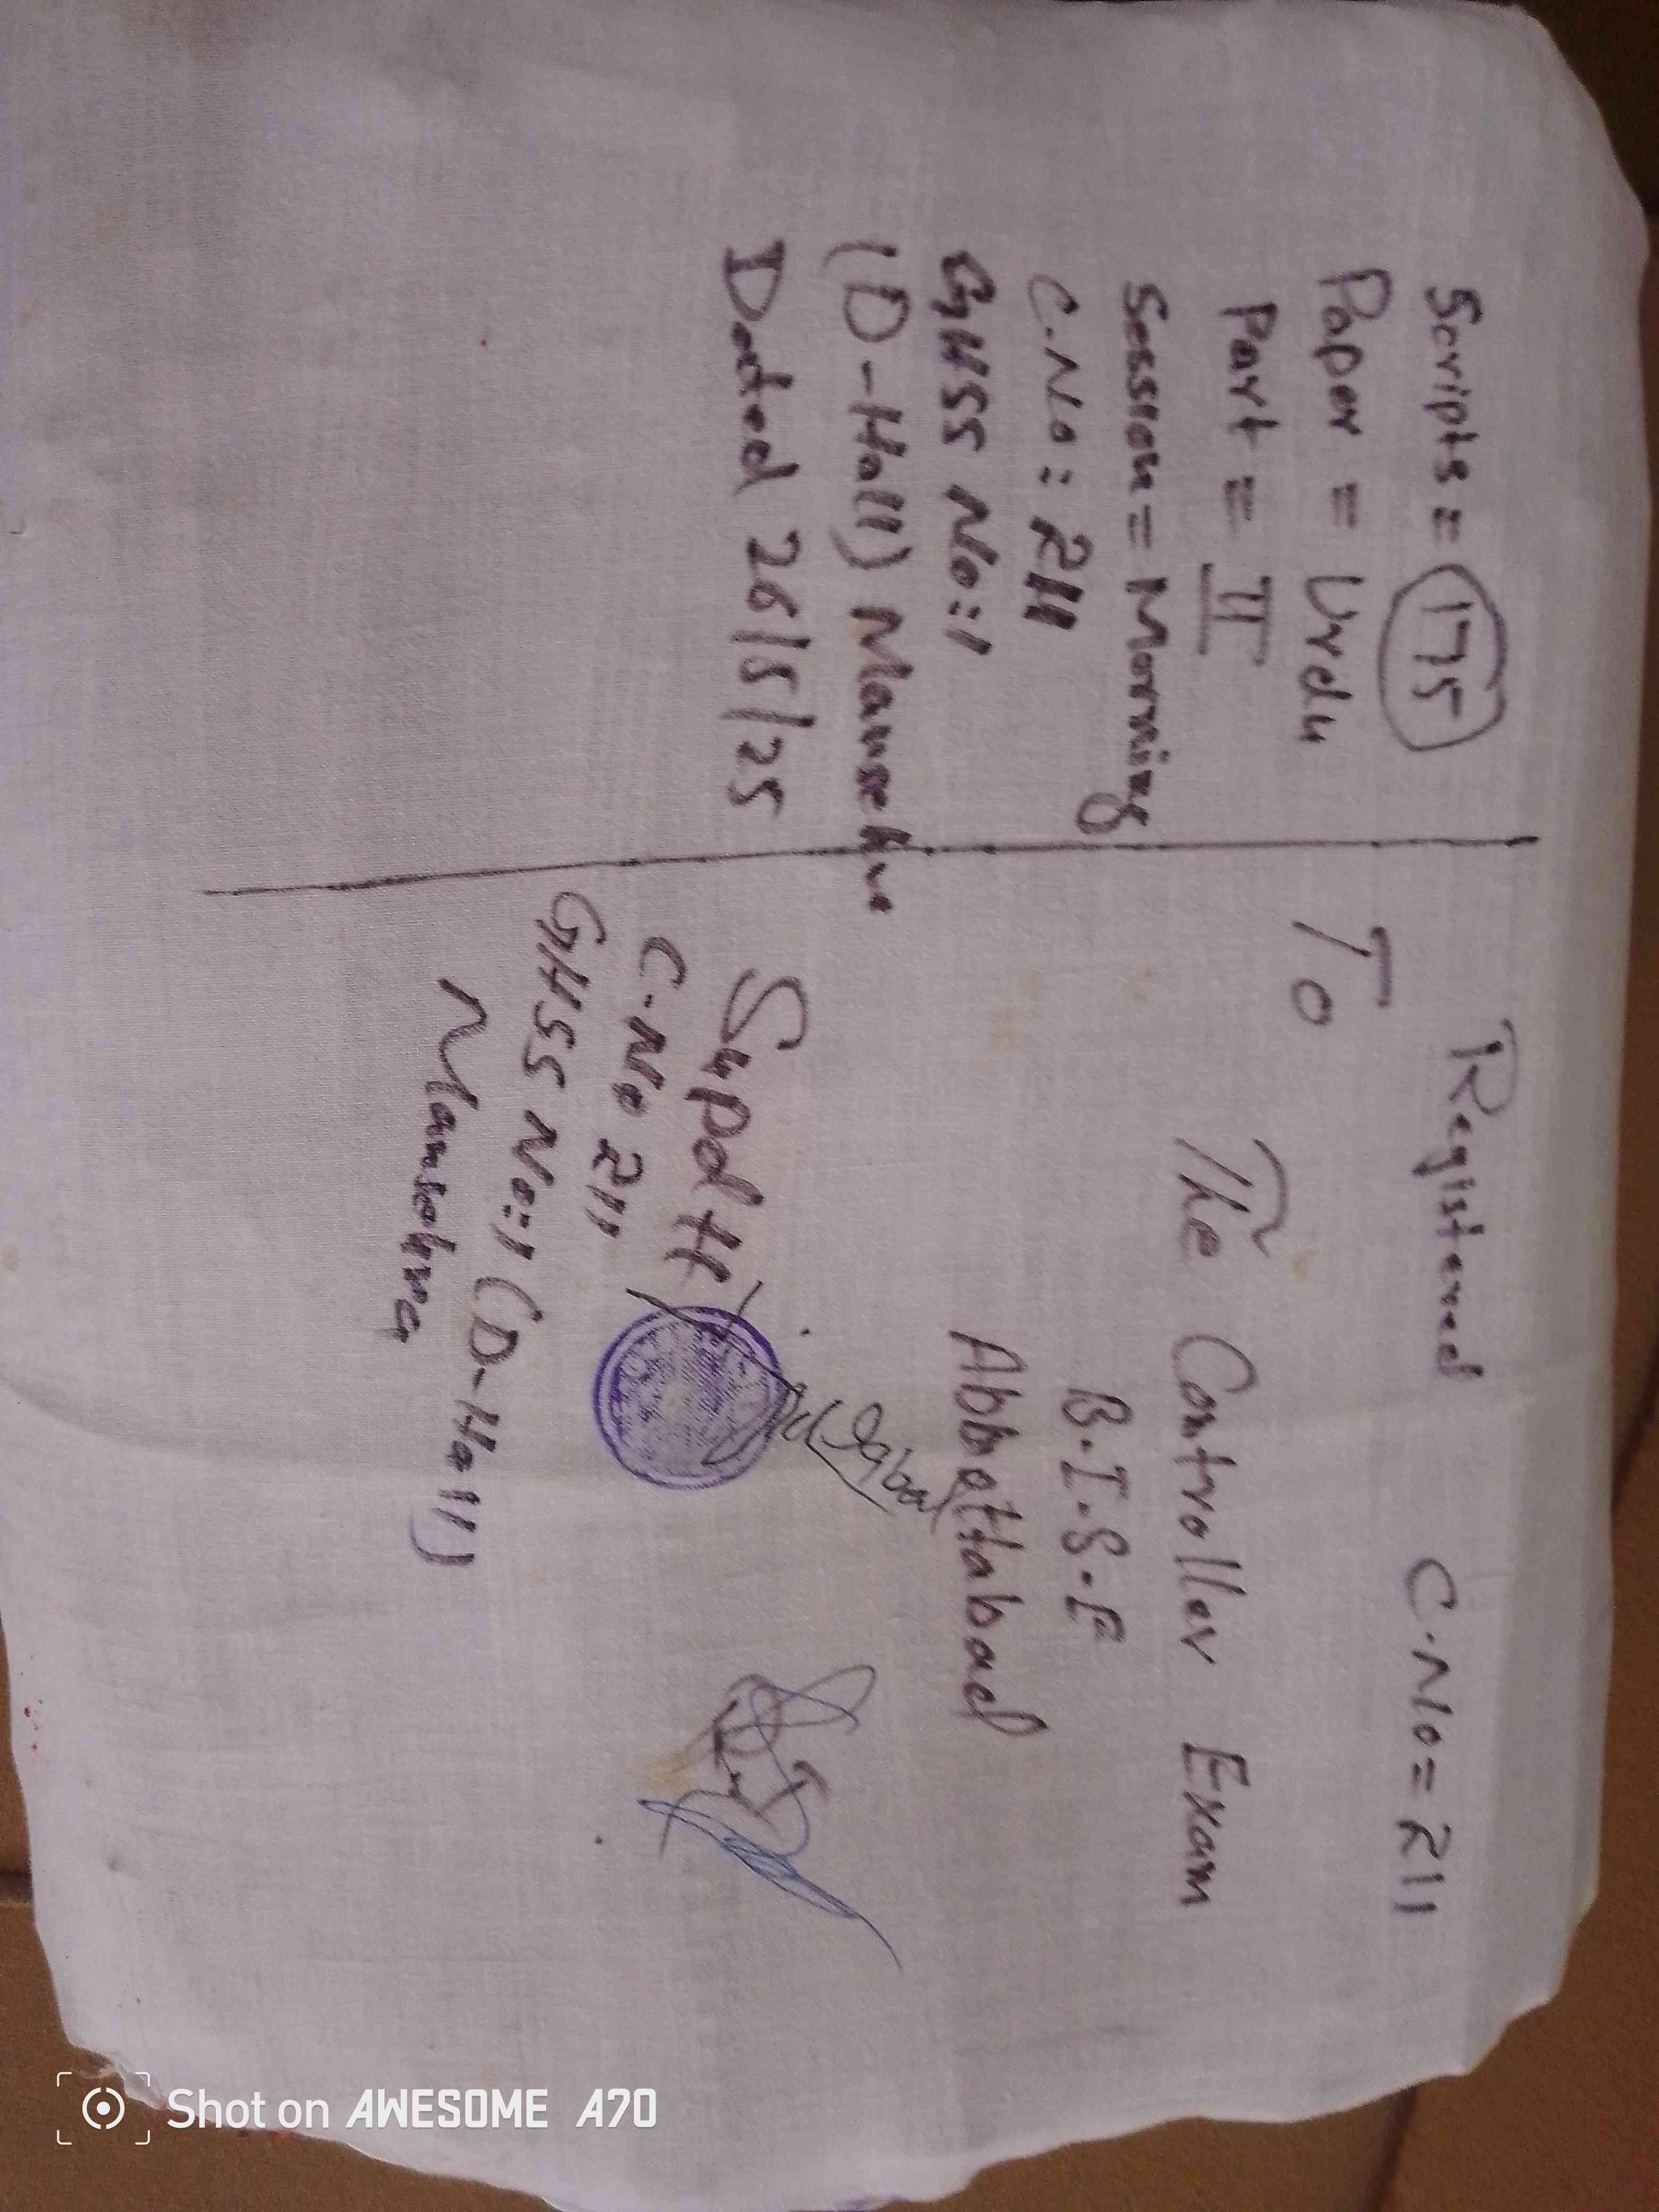 Scripts = 175
Paper = Urdu
Part = II
Session = Morning
C.No: 211
GHSS No:1
(D-Hall) Mansehra
Dated 26/5/25
Registered C.No = 211
To
The Controller Exam
B.I.S.E
Abbottabad
Supdtt
C.No 211
GHSS No:1 (D-Hall)
Mansehra
Iqbal
Shot on AWESOME A70